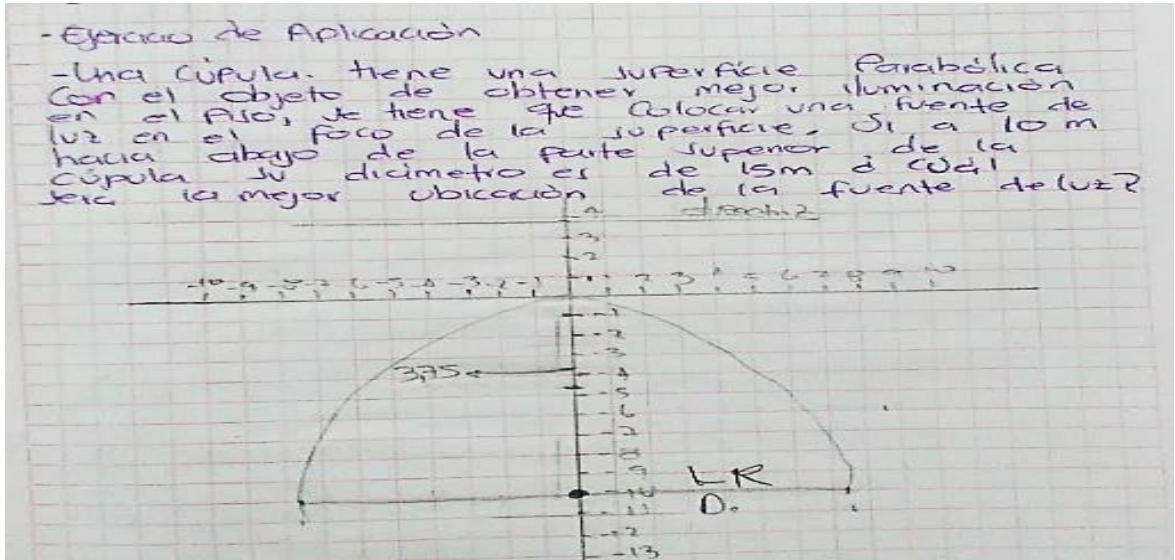 - Ejercicio de Aplicación
- Una cúpula. tiene una superficie Parabólica
Con el objeto de obtener mejor iluminación
en el piso, se tiene que colocar una fuente de
luz en el foco de la superficie. Si a 10 m
hacia abajo de la parte superior de la
cúpula su diámetro es de 15m ¿ cuál
sera la mejor ubicación de la fuente de luz?
4 directriz
3
2
-10 -9 -8 -7 6 -5 -4 -3 -2 -1 1 2 3 4 5 6 7 8 9 10
-1
-2
-3
3,75 -4
-5
-6
-7
-8
-9 LR
-10
-11 D.
-12
-13